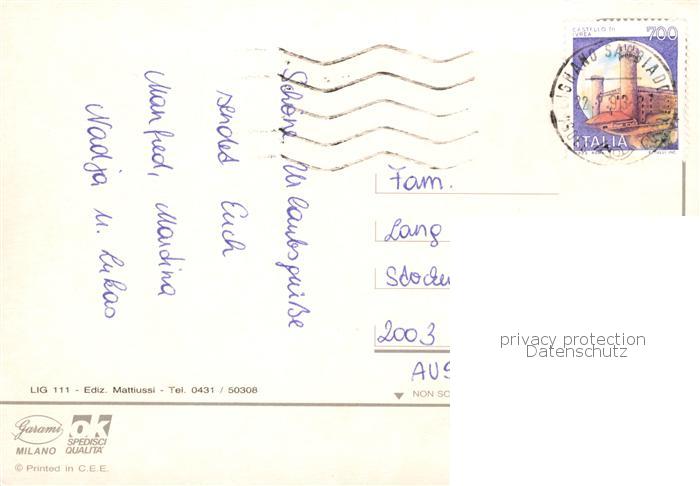 Schöne Urlaubsgrüße
sendet Euch
Manfred, Martina
Nadja u. Lukas
CASTELLO DI
IVREA
700
ITALIA
LIGNANO SABBIADORO
Fam.
Lang
2003
AUS
privacy protection
Datenschutz
LIG 111 - Ediz. Mattiussi - Tel. 0431 / 50308
NON SC
Garami
MILANO
ok
SPEDISCI
QUALITÀ
© Printed in C.E.E.